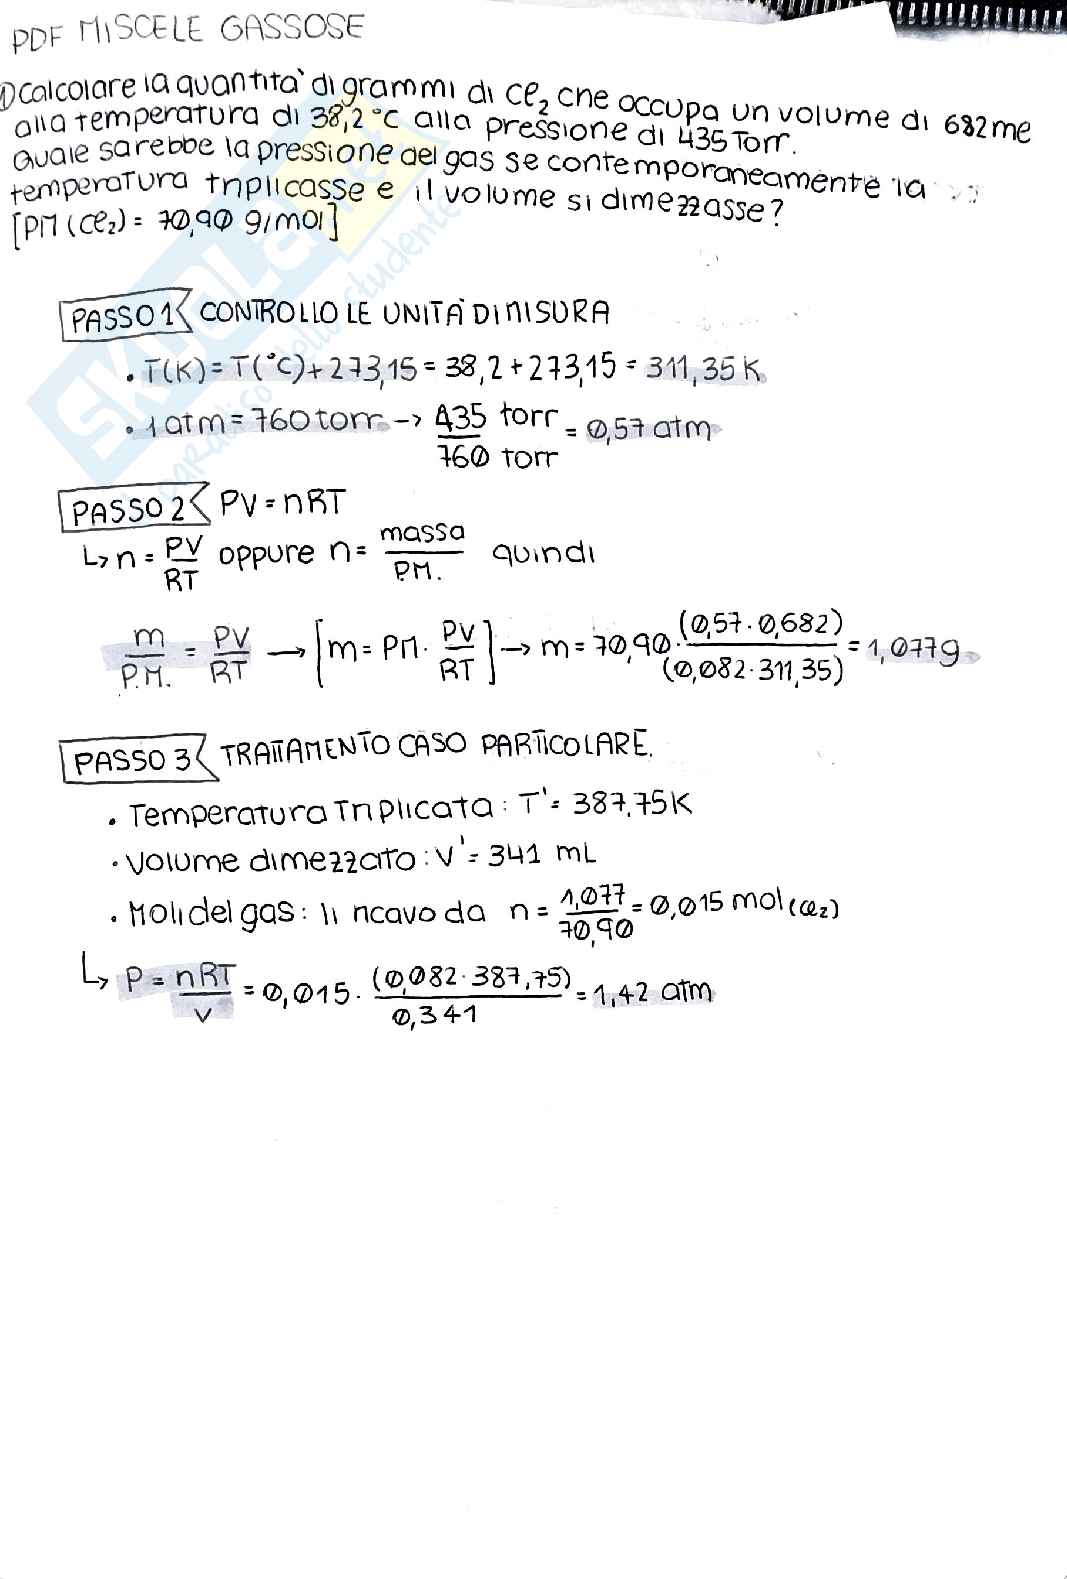 PDF MISCELE GASSOSE
1) Calcolare la quantità di grammi di Cl₂ che occupa un volume di 682 ml
alla temperatura di 38,2 °C alla pressione di 435 Torr.
Quale sarebbe la pressione del gas se contemporaneamente la
temperatura triplicasse e il volume si dimezzasse?
[PM (Cl₂) = 70,90 g/mol]
PASSO 1 CONTROLLO LE UNITÀ DI MISURA
• T(K) = T(°C) + 273,15 = 38,2 + 273,15 = 311,35 K
• 1 atm = 760 torr → 435 torr / 760 torr = 0,57 atm
PASSO 2 PV = nRT
↳ n = PV/RT oppure n = massa/P.M. quindi
m/P.M. = PV/RT → [m = PM · PV/RT] → m = 70,90 · (0,57 · 0,682)/(0,082 · 311,35) = 1,077g
PASSO 3 TRATTAMENTO CASO PARTICOLARE.
• Temperatura Triplicata: T' = 387,75K
• Volume dimezzato: V' = 341 mL
• Moli del gas: li ricavo da n = 1,077/70,90 = 0,015 mol (Cl₂)
↳ P = nRT/V = 0,015 · (0,082 · 387,75)/0,341 = 1,42 atm
SKUOLA.net
paradiso dello studente